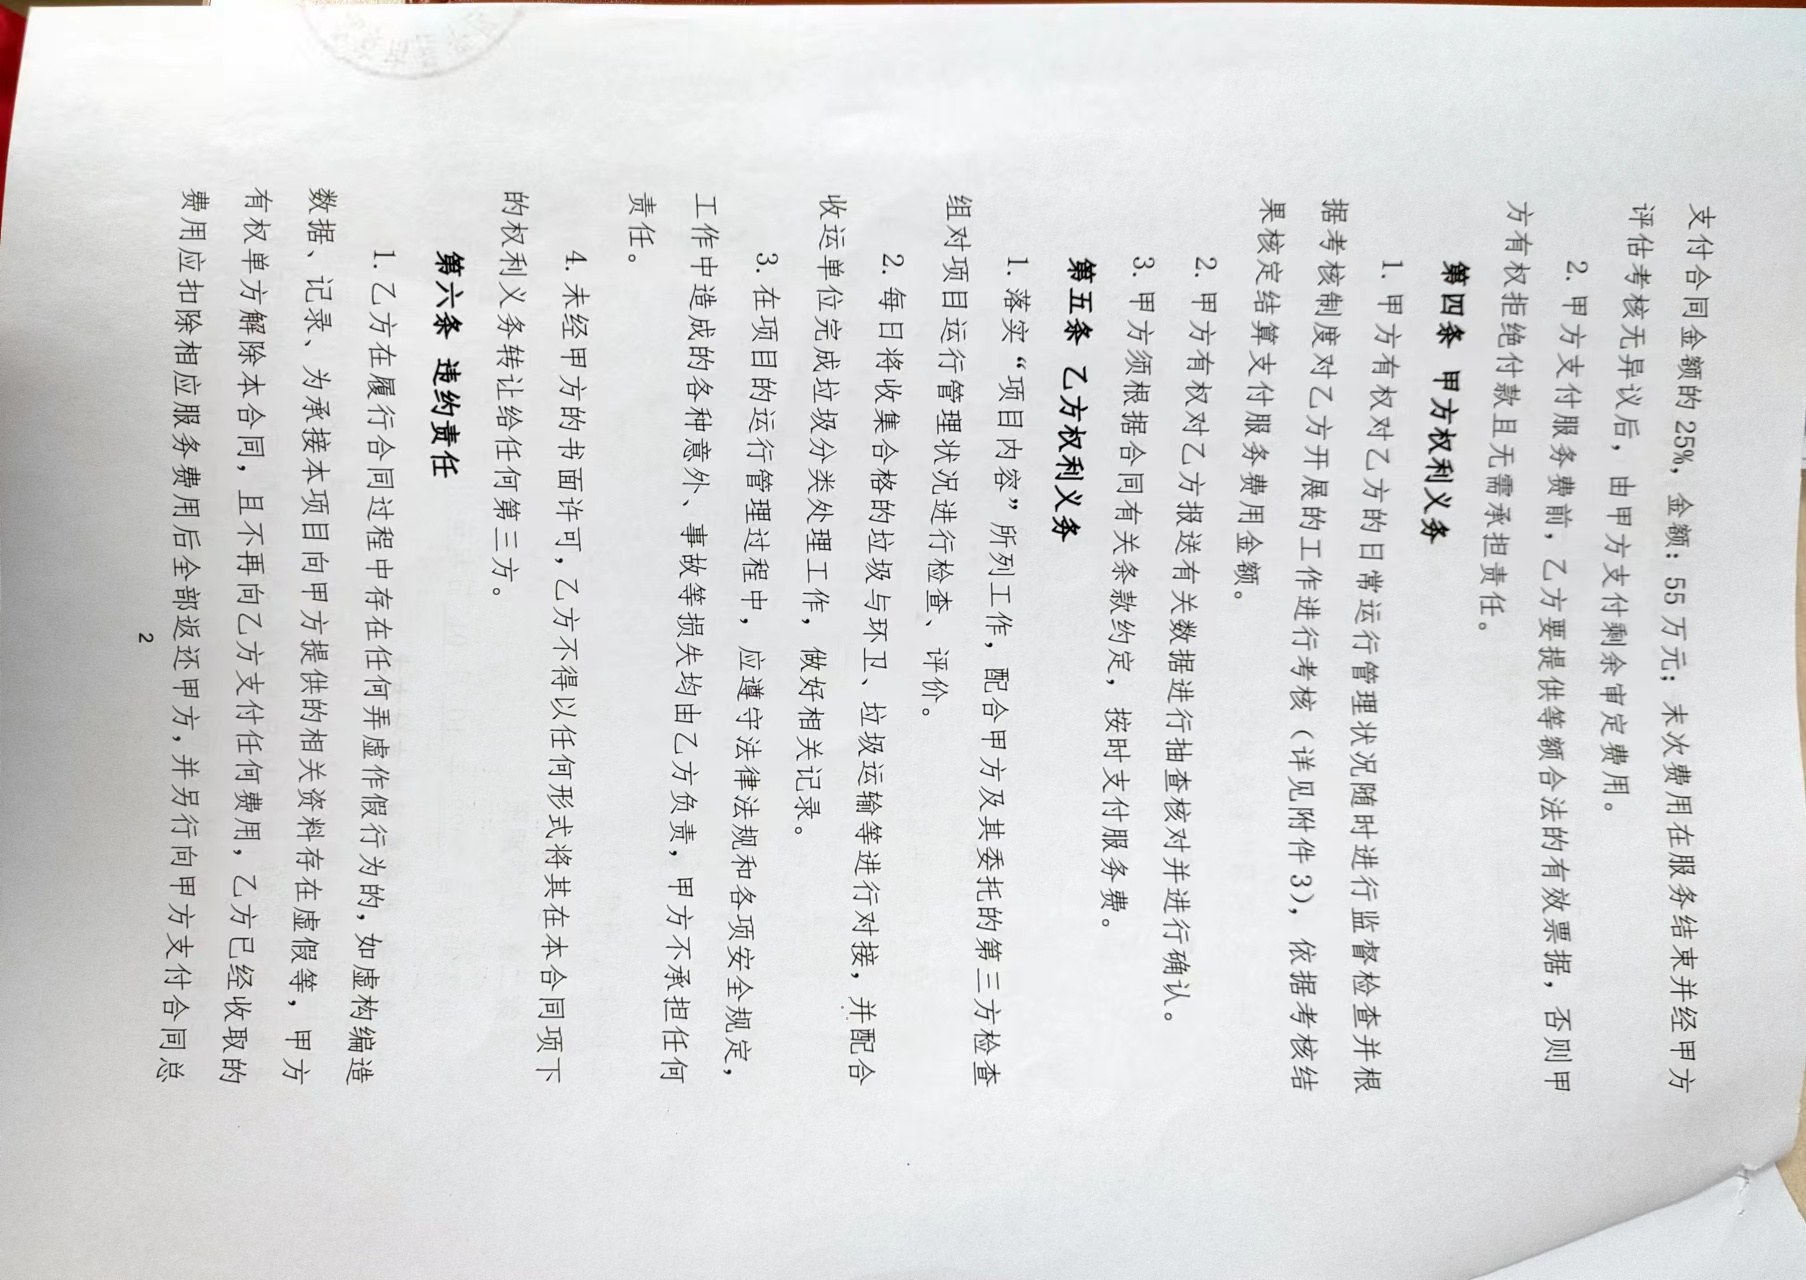 支付合同金额的 25%，金额：55 万元；末次费用在服务结束并经甲方
评估考核无异议后，由甲方支付剩余审定费用。
2. 甲方支付服务费前，乙方要提供等额合法的有效票据，否则甲
方有权拒绝付款且无需承担责任。
第四条 甲方权利义务
1. 甲方有权对乙方的日常运行管理状况随时进行监督检查并根
据考核制度对乙方开展的工作进行考核（详见附件 3），依据考核结
果核定结算支付服务费用金额。
2. 甲方有权对乙方报送有关数据进行抽查核对并进行确认。
3. 甲方须根据合同有关条款约定，按时支付服务费。
第五条 乙方权利义务
1. 落实“项目内容”所列工作，配合甲方及其委托的第三方检查
组对项目运行管理状况进行检查、评价。
2. 每日将收集合格的垃圾与环卫、垃圾运输等进行对接，并配合
收运单位完成垃圾分类处理工作，做好相关记录。
3. 在项目的运行管理过程中，应遵守法律法规和各项安全规定，
工作中造成的各种意外、事故等损失均由乙方负责，甲方不承担任何
责任。
4. 未经甲方的书面许可，乙方不得以任何形式将其在本合同项下
的权利义务转让给任何第三方。
第六条 违约责任
1. 乙方在履行合同过程中存在任何弄虚作假行为的，如虚构编造
数据、记录、为承接本项目向甲方提供的相关资料存在虚假等，甲方
有权单方解除本合同，且不再向乙方支付任何费用，乙方已经收取的
费用应扣除相应服务费用后全部返还甲方，并另行向甲方支付合同总
2